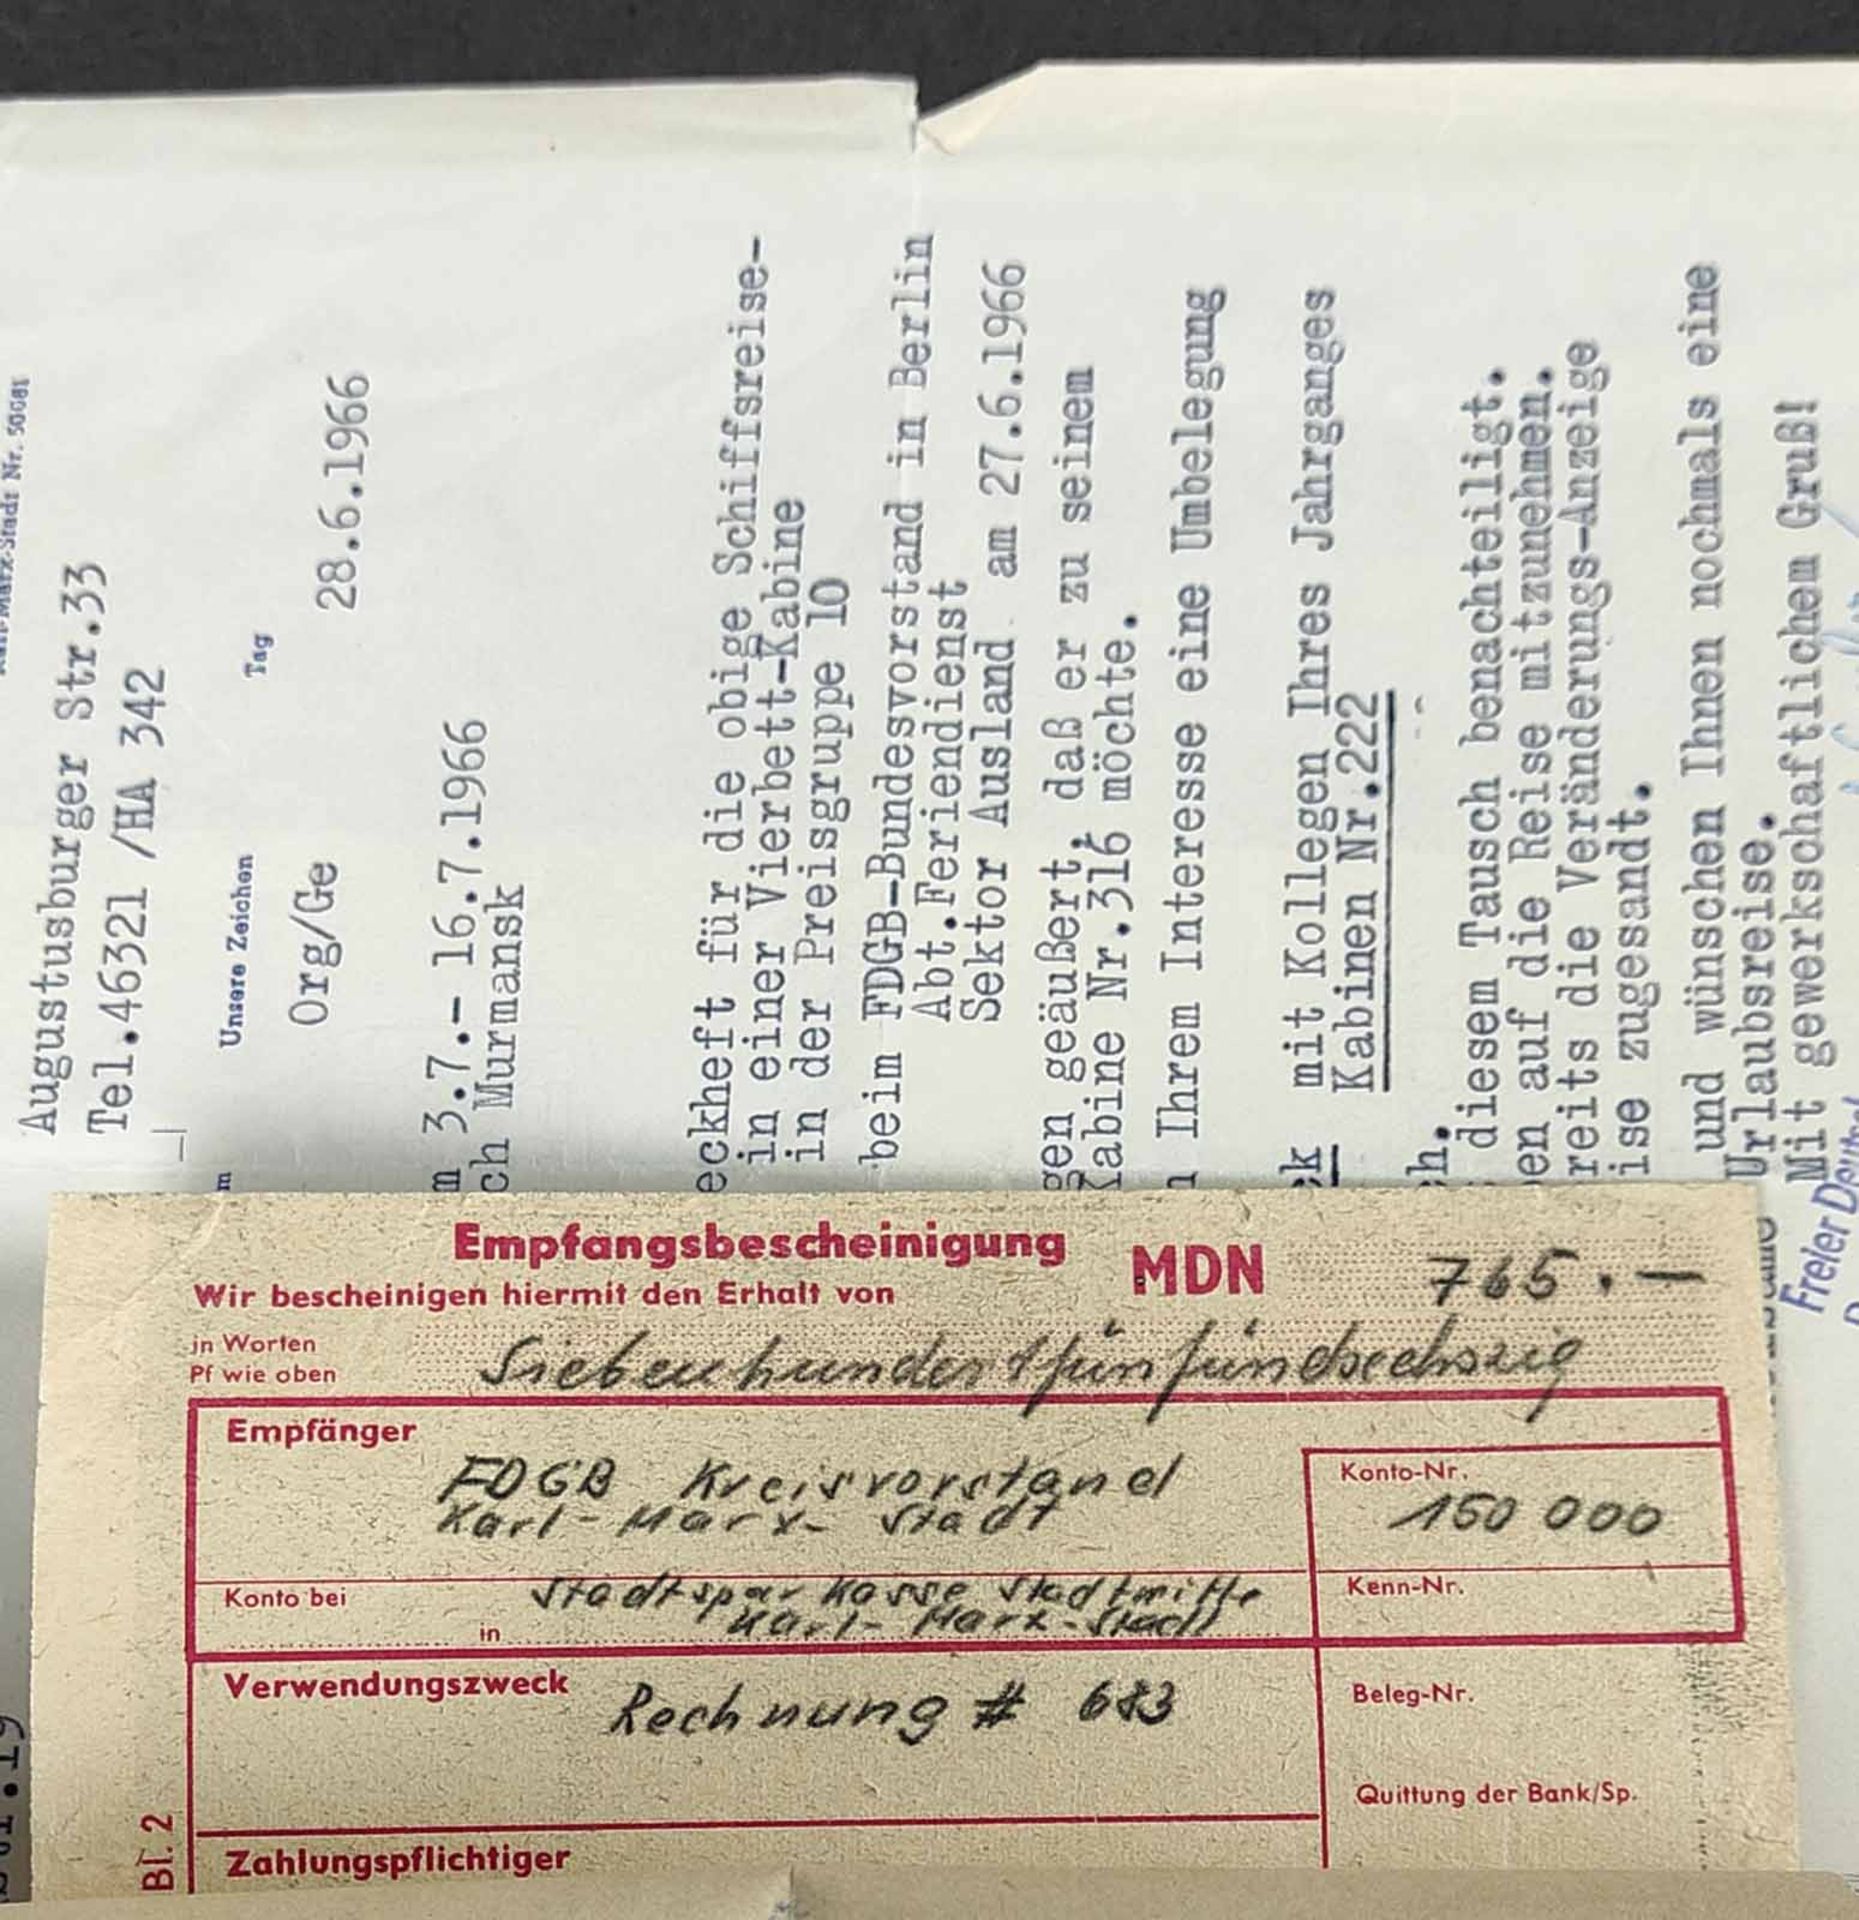 Karl-Marx-Stadt Nr. 50081
Augustusburger Str.33
Tel.46321 /HA 342
Unsere Zeichen Tag
Org/Ge 28.6.1966
m 3.7.- 16.7.1966
ch Murmansk
eckheft für die obige Schiffsreise-
in einer Vierbett-Kabine
in der Preisgruppe 10
beim FDGB-Bundesvorstand in Berlin
Abt.Feriendienst
Sektor Ausland am 27.6.1966
gen geäußert, daß er zu seinem
Kabine Nr.316 möchte.
n Ihrem Interesse eine Umbelegung
ck mit Kollegen Ihres Jahrganges
Kabinen Nr.222
ch.
diesem Tausch benachteiligt.
en auf die Reise mitzunehmen.
reits die Veränderungs-Anzeige
ise zugesandt.
und wünschen Ihnen nochmals eine
Urlaubsreise.
Mit gewerkschaftlichem Gruß!
Freier Deutsch
Empfangsbescheinigung MDN 765.—
Wir bescheinigen hiermit den Erhalt von
in Worten
Pf wie oben Siebenhundertfünfündsechszig
Empfänger
FDGB Kreisvorstand
Karl-Marx-Stadt
Konto-Nr.
150 000
Konto bei Stadtsparkasse Stadtmitte
in Karl-Marx-Stadt
Kenn-Nr.
Verwendungszweck Rechnung # 683
Beleg-Nr.
Quittung der Bank/Sp.
Bl. 2
Zahlungspflichtiger